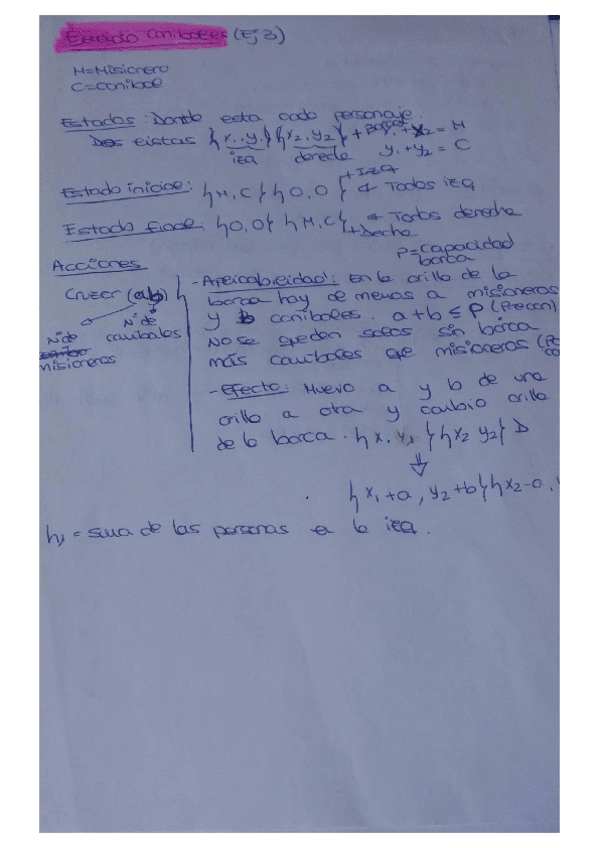 Ejercicio Caníbales (Ej 3)
M=Misionero
C=Caníbal
Estados: Donde esta cada personaje.
Dos listas {x1, y1} {x2, y2} + Barca x1+x2 = M
izq derecha y1+y2 = C
Estado inicial: {M,C} {0,0} +Izq Todos izq
Estado final: {0,0} {M,C} +Decha Todos derecha
P=capacidad barca
Acciones
Cruzar (a,b)
Nº de misioneros
Nº de canibales
- Aplicabilidad: En la orilla de la
barca hay al menos a misioneros
y b canibales. a+b ≤ P (Precon)
No se queden solos sin barca
más canibales que misioneros
- Efecto: Muevo a y b de una
orilla a otra y cambio orilla
de la barca. {x1 y1} {x2 y2} D
↓
{x1+a, y2+b} {x2-a,
h1 = suma de las personas en la izq.